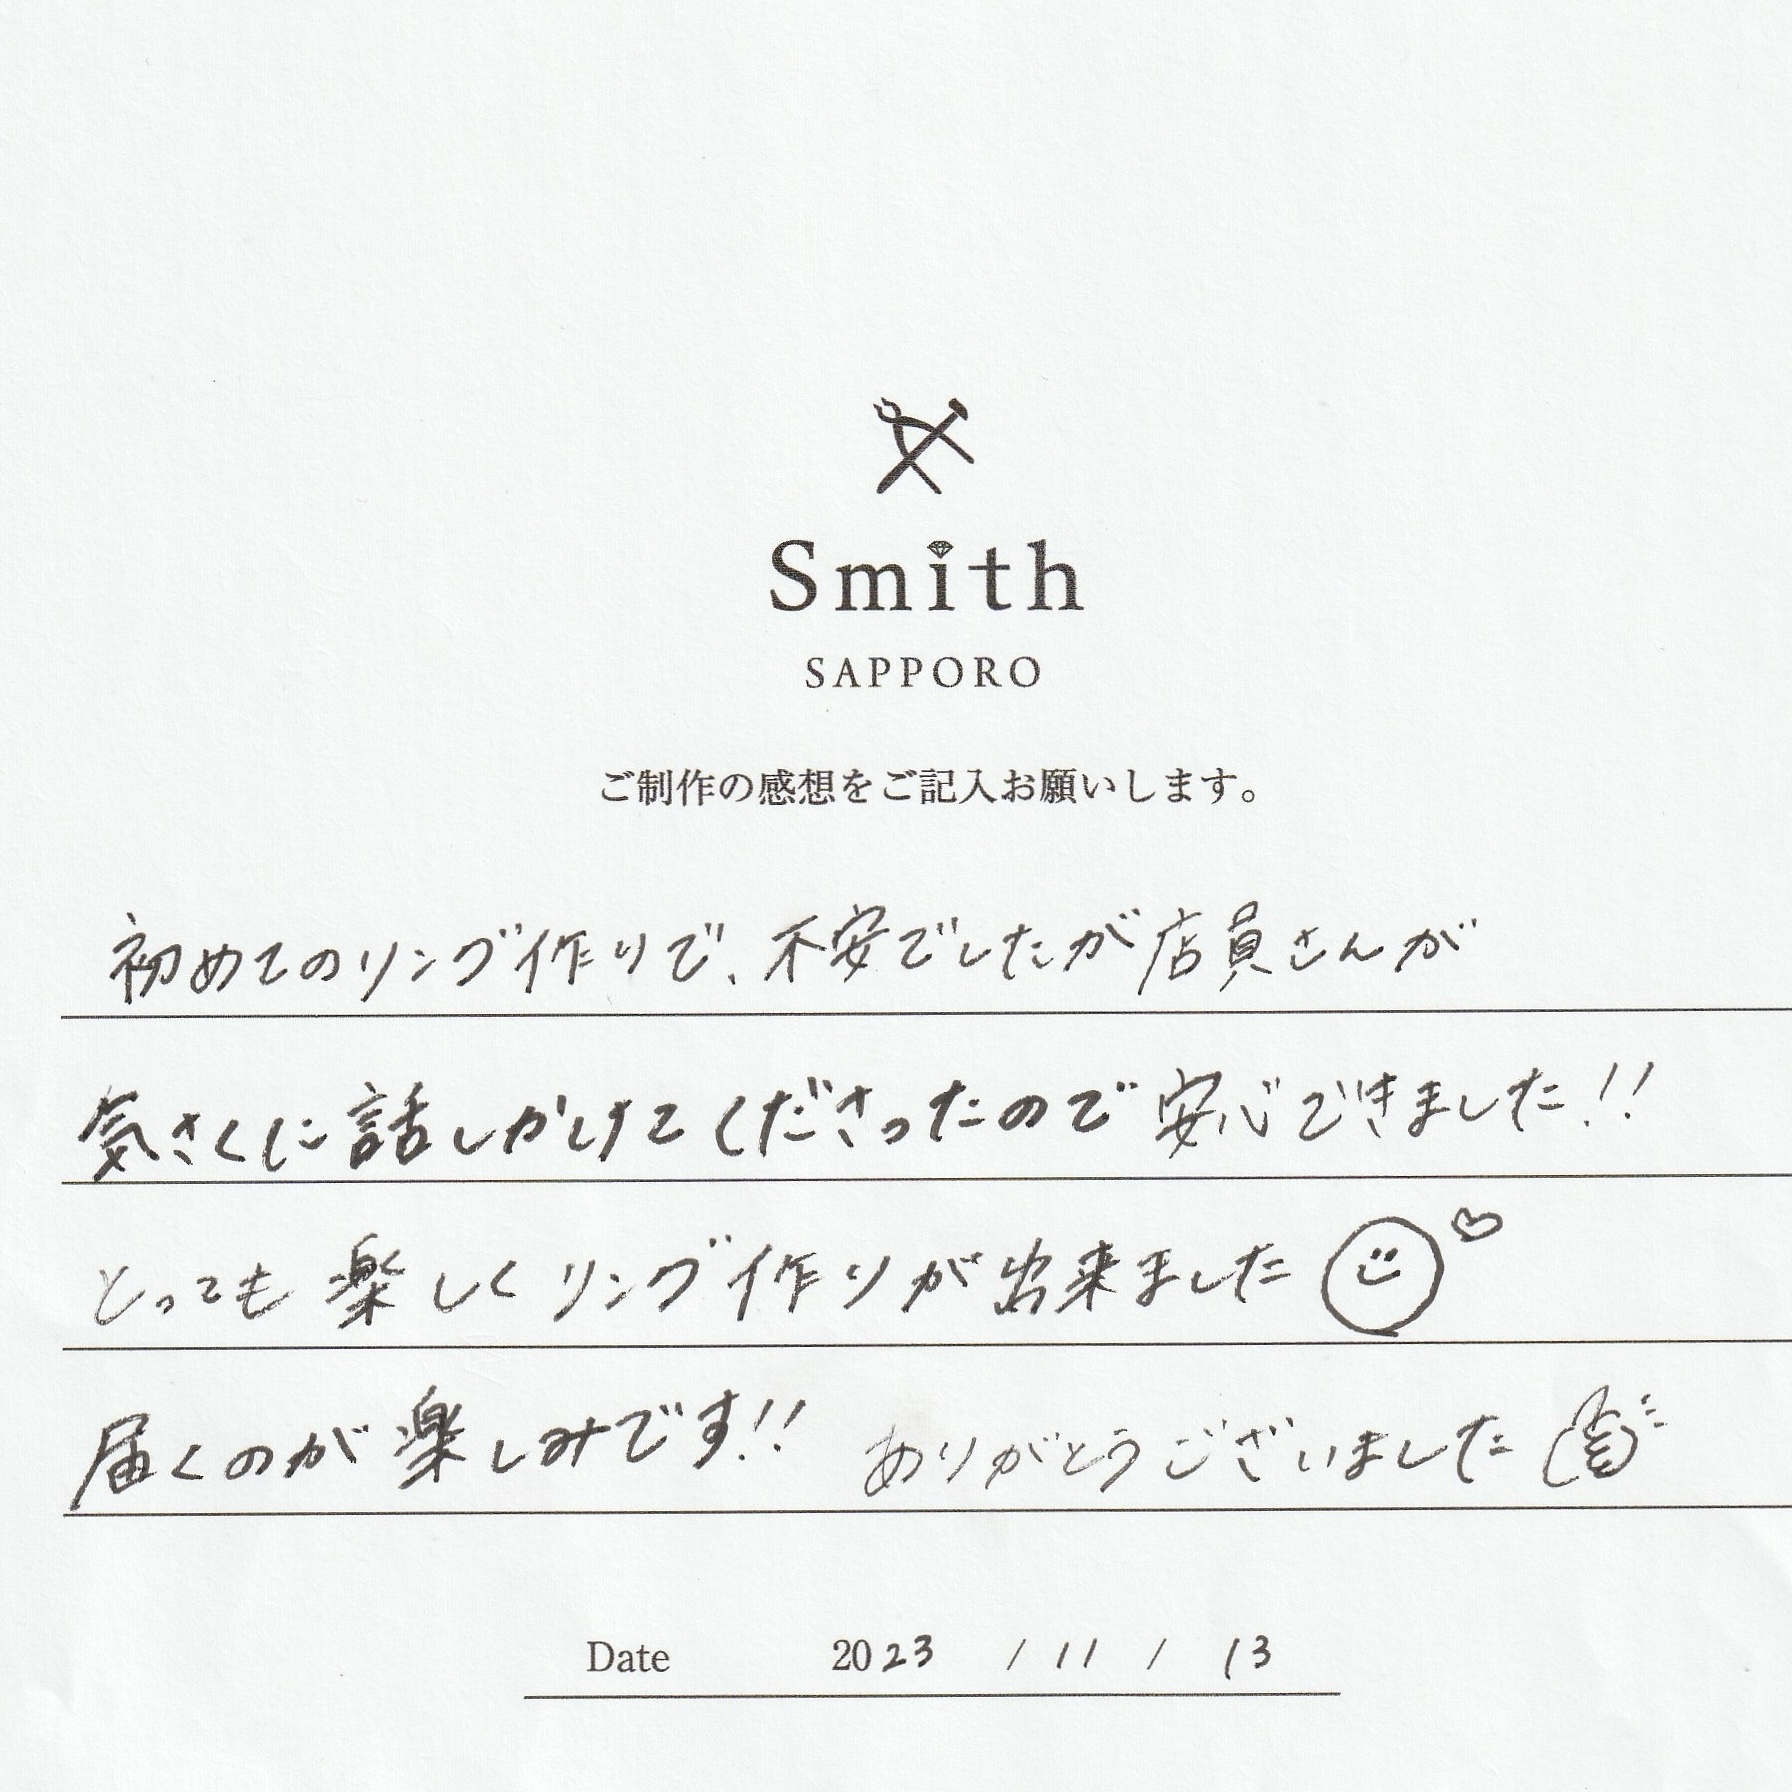 Smith
SAPPORO
ご制作の感想をご記入お願いします。
初めてのリング作りで、不安でしたが店員さんが
気さくに話しかけてくださったので安心できました!!
とっても楽しくリング作りが出来ました
届くのが楽しみです!! ありがとうございました
Date 2023 / 11 / 13